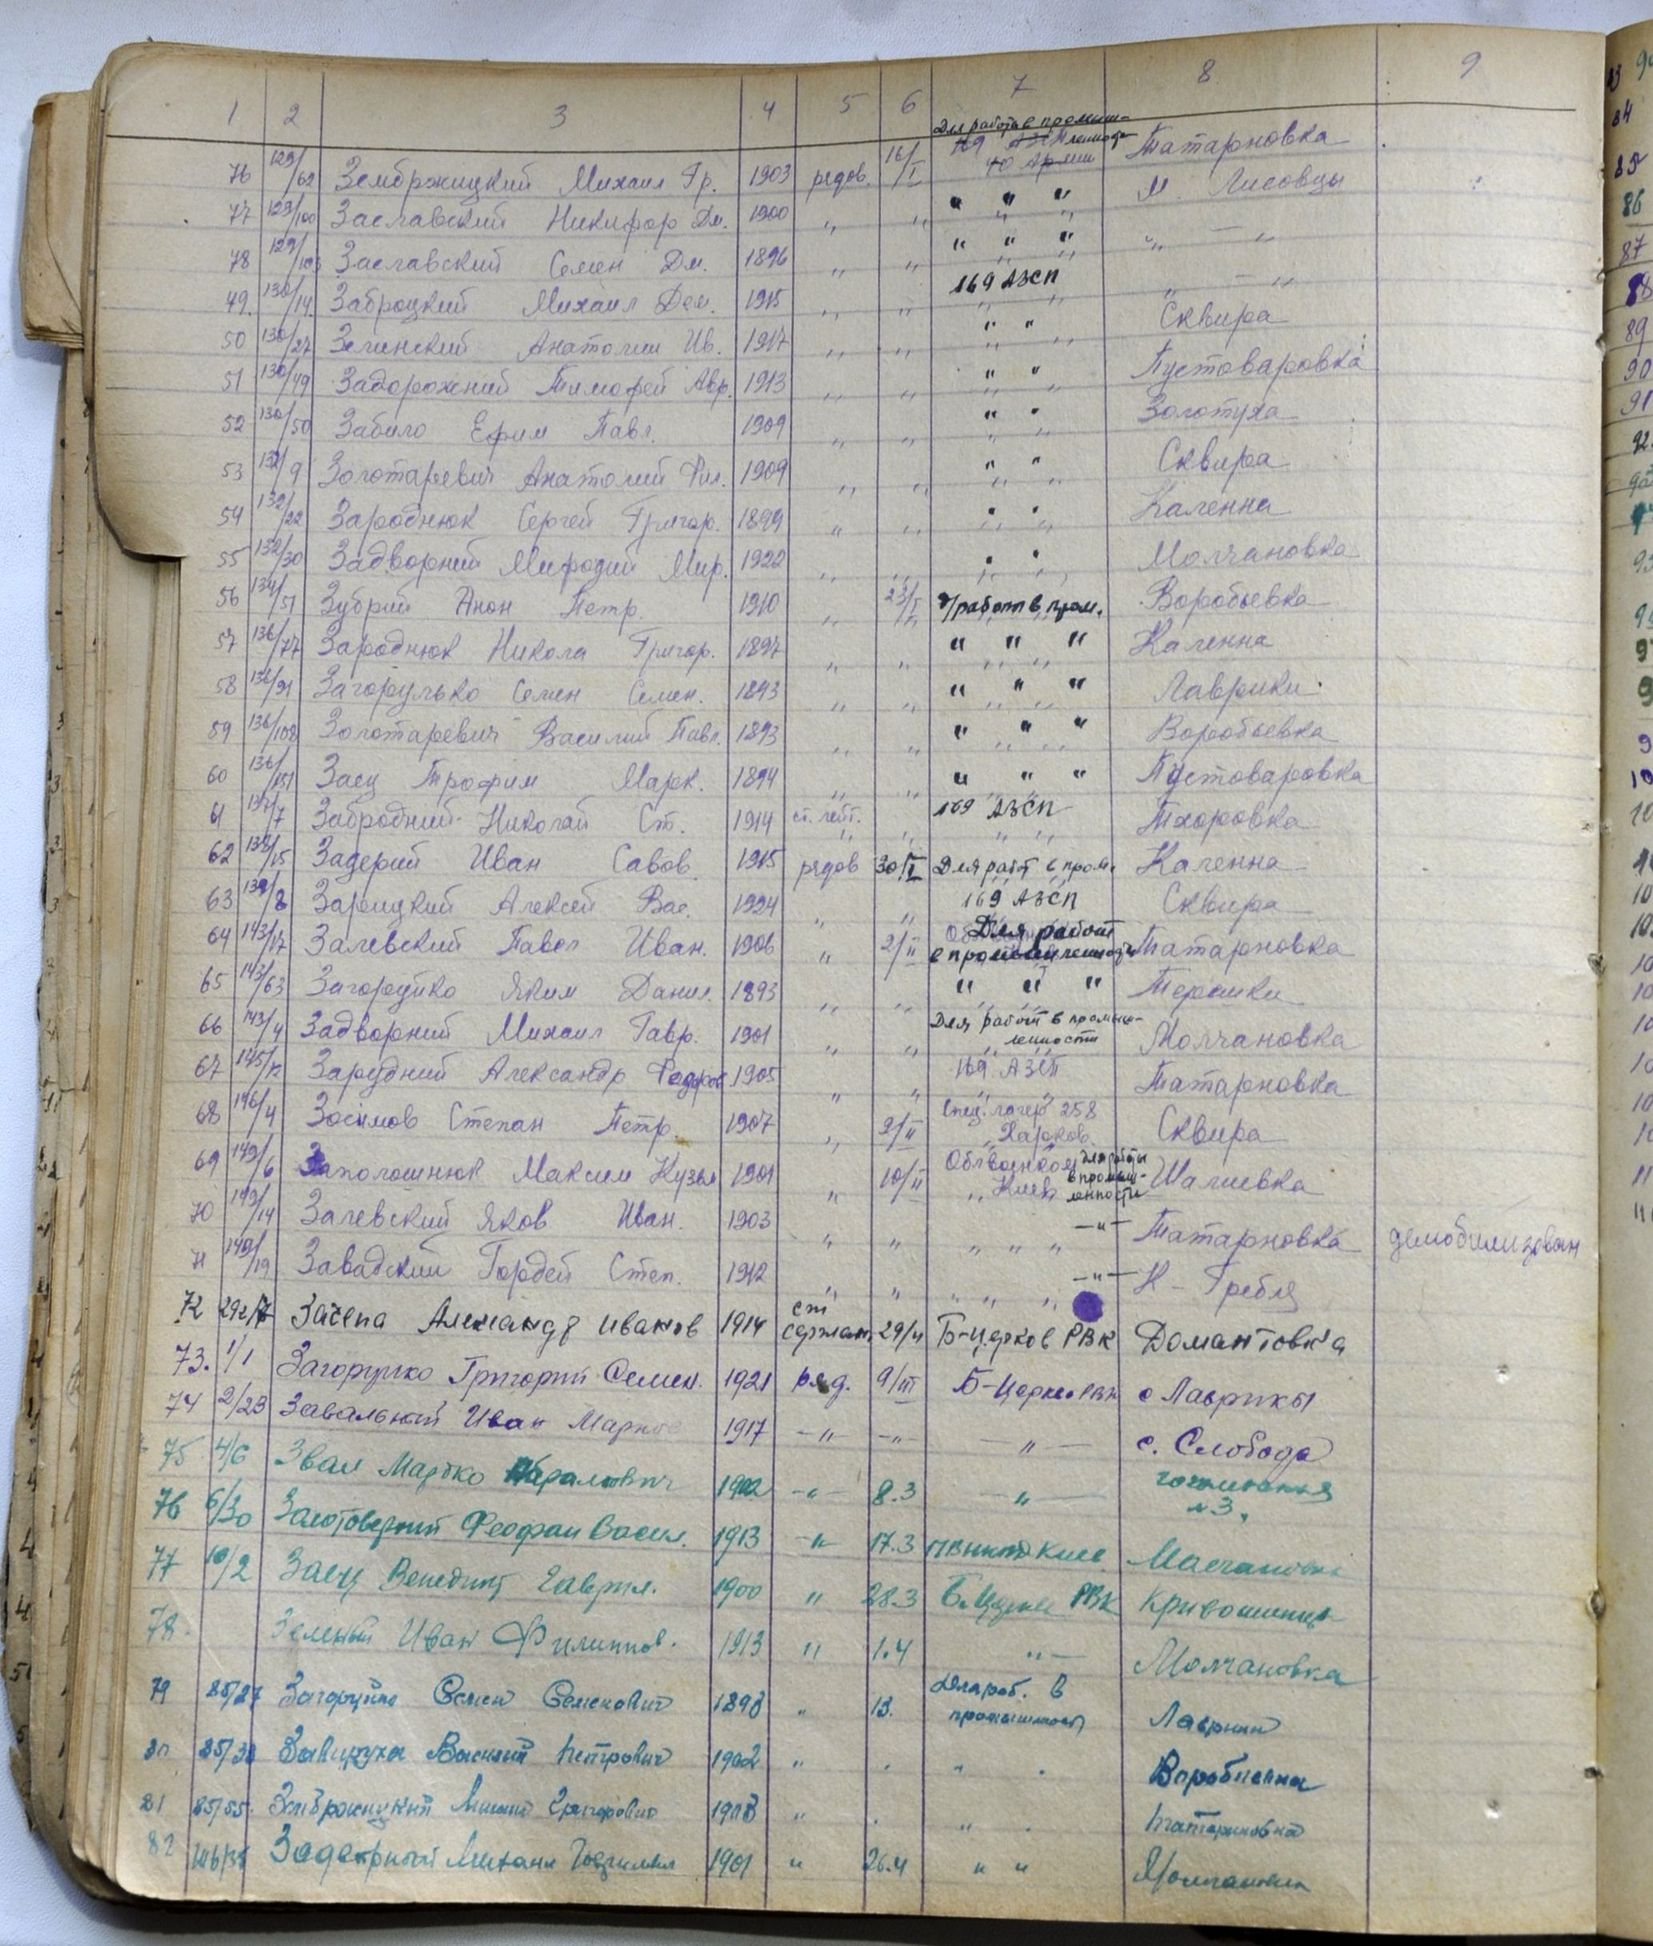 1 2 3 4 5 6 7 8 9
Для работы в промыш-
76 129/62 Зембржицкий Михаил Гр. 1903 рядов. 16/I 40 Армии Татарновка
77 129/100 Заславский Никифор Дм. 1900 " " " " " М. Лисовцы
78 129/103 Заславский Семен Дм. 1896 " " " " " " — "
49. 130/14 Заброцкий Михаил Дем. 1915 " " 169 АЗСП " — "
50 130/27 Зелинский Анатолий Ив. 1917 " " " " Сквира
51 130/49 Задорожний Тимофей Авр. 1913 " " " " Пустоваровка
52 130/50 Забило Ефим Павл. 1909 " " " " Золотуха
53 132/9 Золотаревич Анатолий Фил. 1909 " " " " Сквира
54 132/22 Зароднюк Сергей Григор. 1899 " " " " Каленна
55 132/30 Задворний Мифодий Мир. 1922 " " " " Молчановка
56 134/51 Зубрий Анон Петр. 1910 " 23/I Д/работ в пром. Воробьевка
57 136/77 Зароднюк Никола Григор. 1897 " " " " " Каленна
58 136/91 Загорулько Семен Семен. 1893 " " " " " Лаврики
59 136/108 Золотаревич Василий Павл. 1893 " " " " " Воробьевка
60 136/151 Заец Трофим Марк. 1894 " " " " " Пустоваровка
61 137/7 Забродний Николай Ст. 1914 ст. лейт. " 169 АЗСП Тхоровка
62 138/15 Задерий Иван Савов. 1915 рядов 30/I Для работ в пром. Каленна
63 139/8 Зарицкий Алексей Вас. 1924 " " 169 АЗСП Сквира
64 143/17 Залевский Павел Иван. 1906 " 2/II Для работ в промышленности Татарновка
65 143/63 Загоруйко Яким Данил. 1893 " " " " " Терешки
66 143/4 Задворний Михаил Гавр. 1901 " " Для работ в промыш-
ленности Молчановка
67 145/12 Зарудний Александр Федоров 1905 " " 169 АЗСП Татарновка
68 146/4 Зосимов Степан Петр. 1907 " 2/II Спец. лагерь 258
Харков. Сквира
69 149/6 Заполошнюк Максим Кузьм 1901 " 10/II Облвоенком Киев для работы
в промыш-
ленности Шалиевка
70 149/14 Залевский Яков Иван. 1903 " " " " " — " — Татарновка демобилизован
71 149/19 Завадский Гордей Степ. 1912 " " " " " — " — Н - Гребля
72 292/7 Зачепа Александр Иванов 1914 ст сержан. 29/II Б-Церков РВК Домантовка
73. 1/1 Загорулко Григорий Семен. 1921 ряд. 9/III Б-Церков РВК с Лаврикы
74 2/23 Завальний Иван Марков 1917 — " — — " — — " — с. Слобода
75 4/6 Звал Марко 1902 — " — 8.3 — " —
№3.
76 6/30 Золотоверхий Феофан Васил. 1913 — " 17.3 Киев Малчановка
77 10/2 Заец Венедикт Гаврил. 1900 " 28.3 Б.Церков РВК Кривошеинцы
78. Зеленый Иван Филиппов. 1913 " 1.4 " — Молчановка
79 85/27 Загоруйко Семен Семенович 1893 " 13. Для раб. в
промышленост Лаврики
80 85/38 Завируха Василий Петрович 1902 " " " " Воробиевка
81 85/55 Зембржицкий Михаил Григорович 1903 " " " " Татариновка
82 Задворный Михаил 1901 " 26.4 " " Молчановка